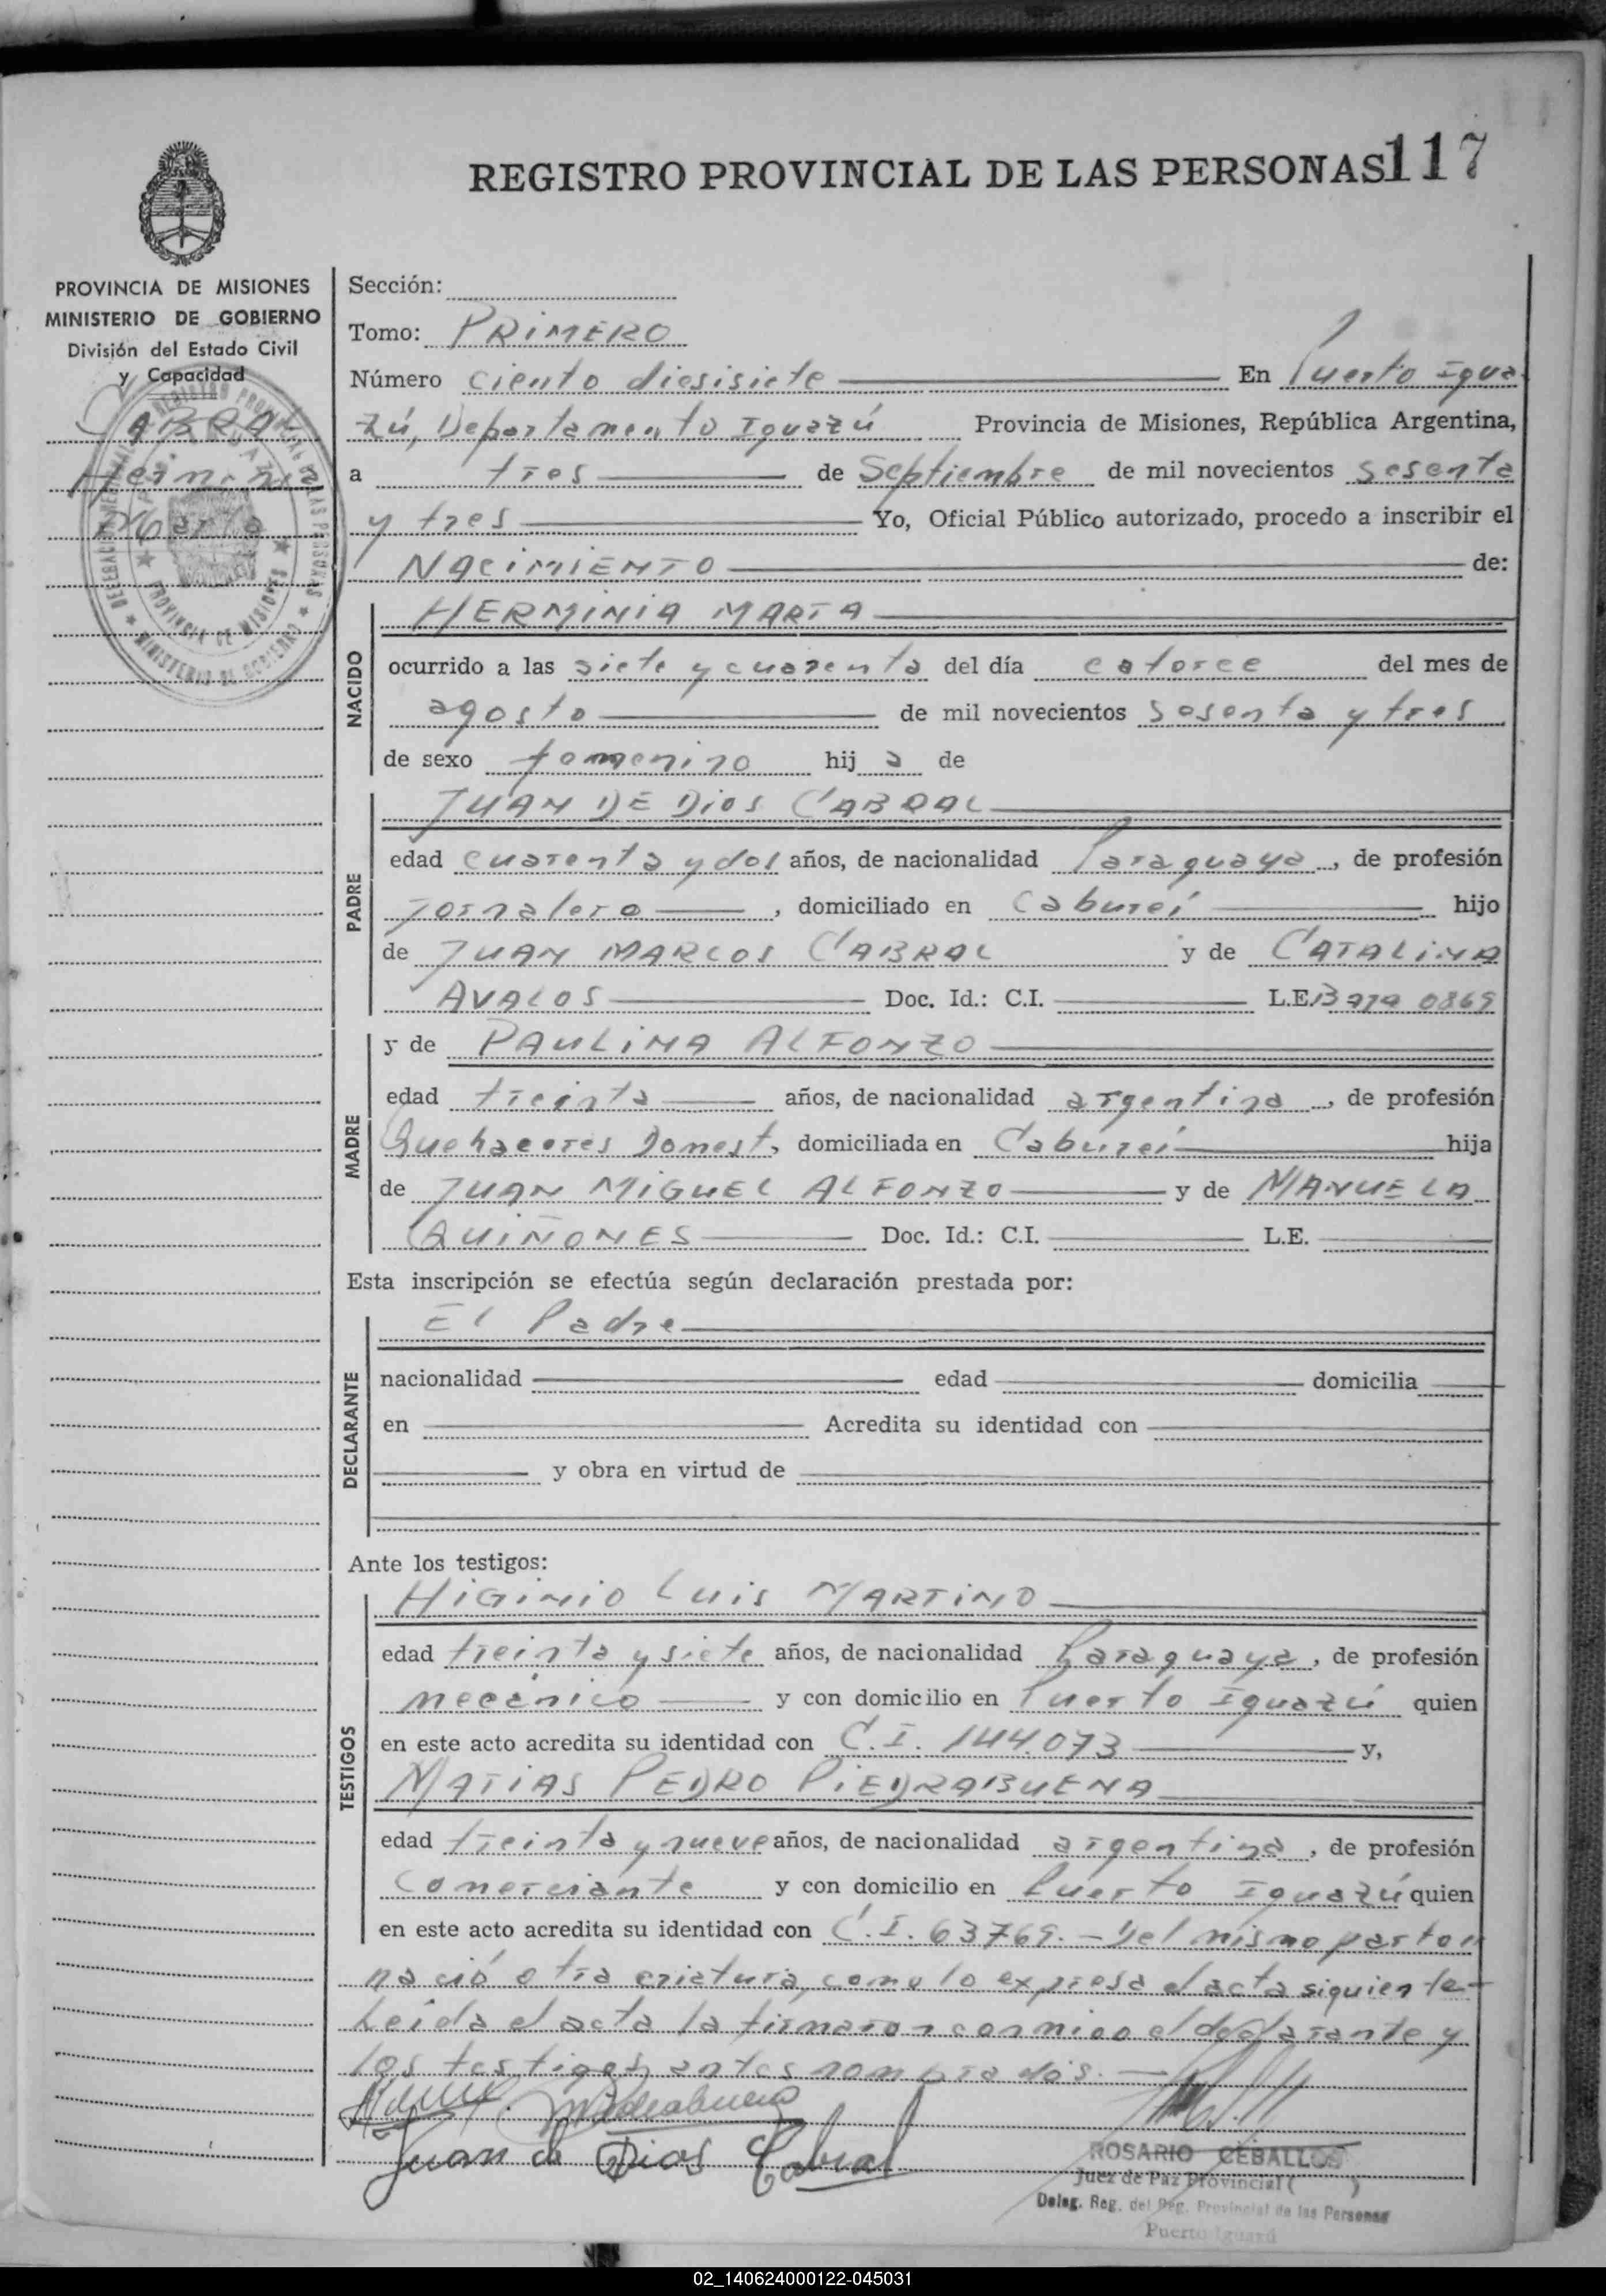 REGISTRO PROVINCIAL DE LAS PERSONAS 117
PROVINCIA DE MISIONES
MINISTERIO DE GOBIERNO
División del Estado Civil
y Capacidad
CABRAL
Herminia
Marta
Sección:
Tomo: PRIMERO
Número ciento diesisiete En Puerto Igua
zú, Departamento Iguazú Provincia de Misiones, República Argentina,
a tres de Septiembre de mil novecientos sesenta
y tres Yo, Oficial Público autorizado, procedo a inscribir el
NACIMIENTO de:
NACIDO
HERMINIA MARTA
ocurrido a las siete y cuarenta del día catorce del mes de
agosto de mil novecientos sesenta y tres
de sexo femenino hij a de
PADRE
JUAN DE DIOS CABRAL
edad cuarenta y dos años, de nacionalidad Paraguaya, de profesión
jornalero, domiciliado en Cabureí hijo
de JUAN MARCOS CABRAL y de CATALINA
AVALOS Doc. Id.: C.I. L.E.
MADRE
y de PAULINA ALFONZO
edad treinta años, de nacionalidad argentina, de profesión
Quehaceres Domest, domiciliada en Cabureí hija
de JUAN MIGUEL ALFONZO y de MANUELA
QUIÑONES Doc. Id.: C.I. L.E.
Esta inscripción se efectúa según declaración prestada por:
DECLARANTE
El Padre
nacionalidad edad domicilia
en Acredita su identidad con
y obra en virtud de
Ante los testigos:
TESTIGOS
HIGINIO LUIS MARTINO
edad treinta y siete años, de nacionalidad Paraguaya, de profesión
mecánico y con domicilio en Puerto Iguazú quien
en este acto acredita su identidad con C.I. 144.073 y,
MATIAS PEDRO PIEDRABUENA
edad treinta y nueve años, de nacionalidad argentina, de profesión
Comerciante y con domicilio en Puerto Iguazú quien
en este acto acredita su identidad con C.I. 63769.- Del mismo parto
nació otra criatura, como lo expresa el acta siguiente-
Leida el acta la firmaron conmigo el declarante y
los testigos antes nombrados.-
Juan de Dios Cabral
ROSARIO CEBALLOS
Juez de Paz Provincial ( )
Deleg. Reg. del Reg. Provincial de las Personas
Puerto Iguazú
02_140624000122-045031